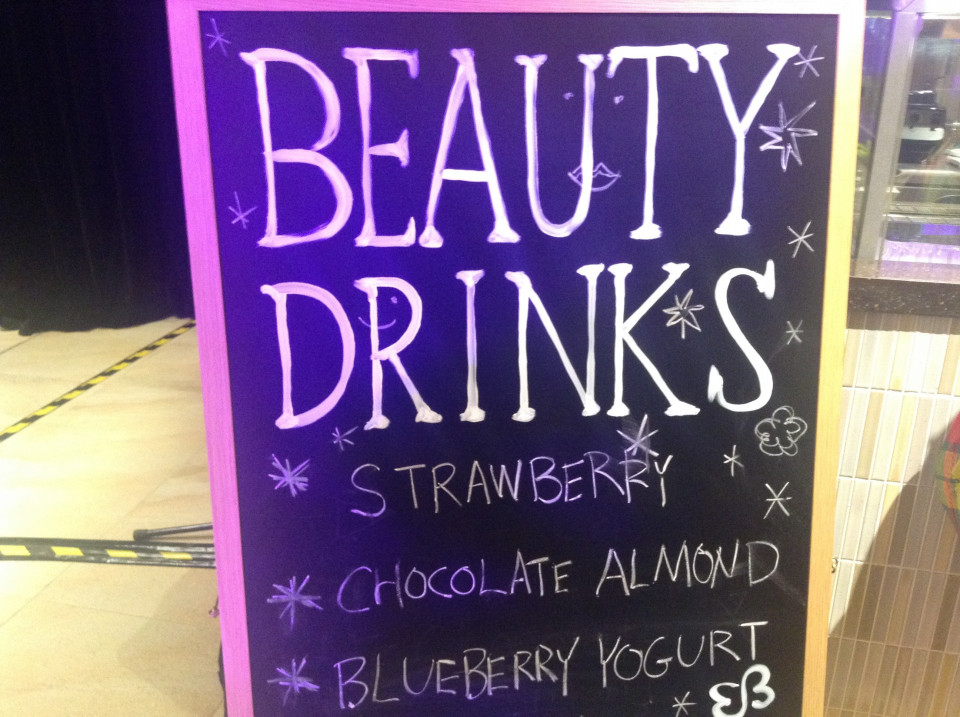 BEAUTY
DRINKS
STRAWBERRY
CHOCOLATE ALMOND
BLUEBERRY YOGURT